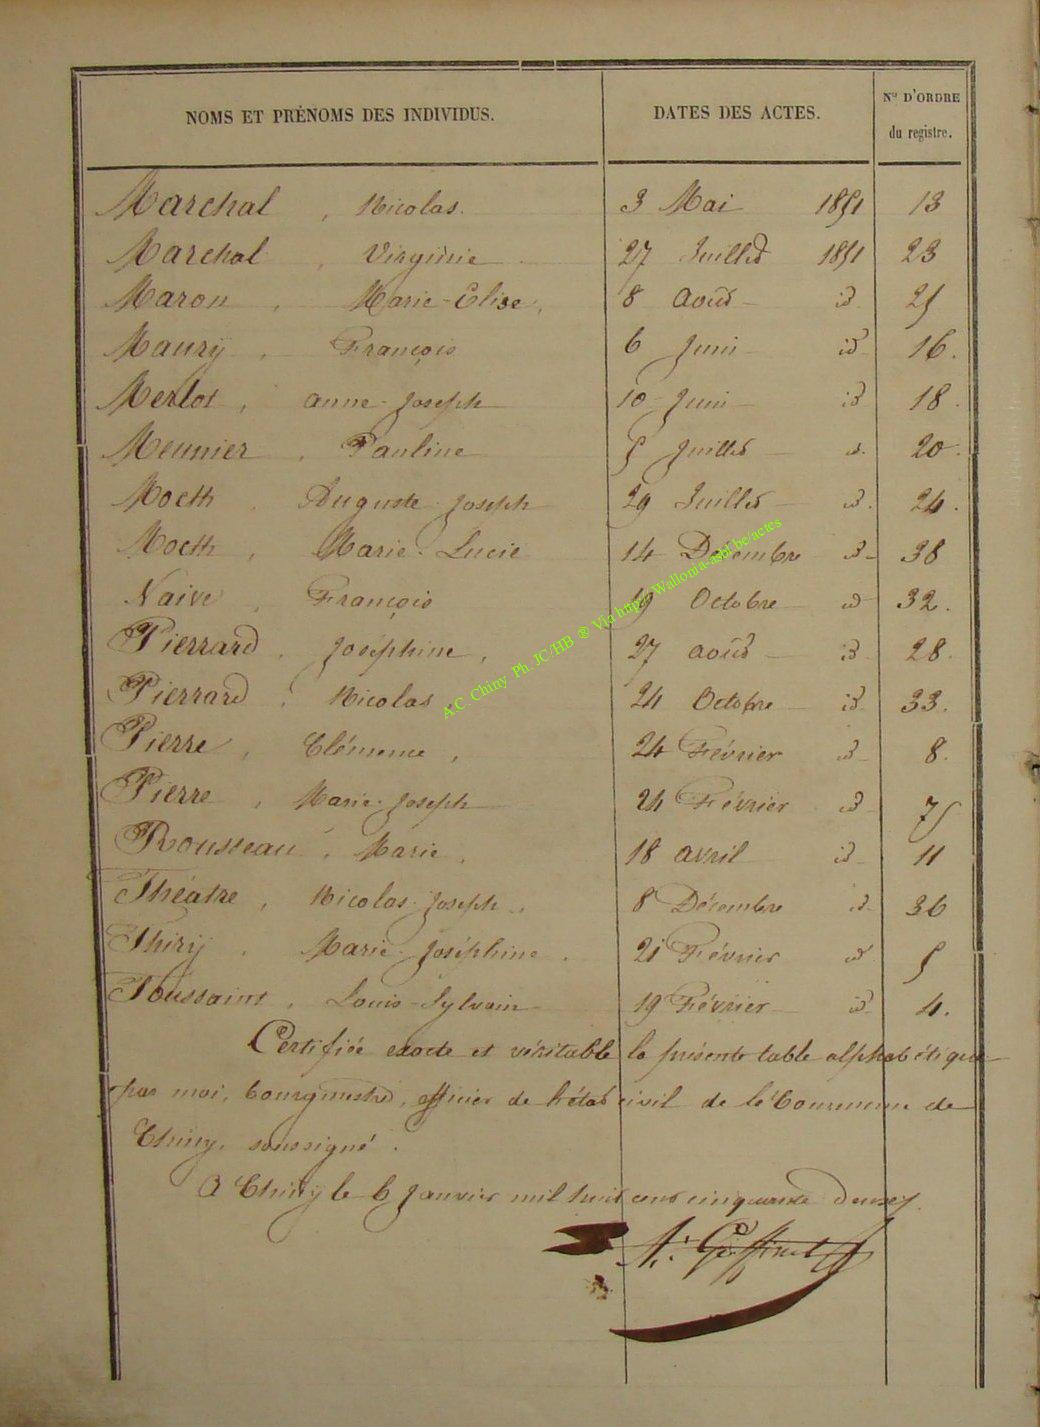 NOMS ET PRÉNOMS DES INDIVIDUS. DATES DES ACTES. Nº D'ORDRE
du registre.
Marchal, Nicolas. 3 Mai 1851 13
Marchal, Virginie 27 Juillet 1851 23
Maron, Marie-Elise, 8 Août id 25
Maury, François 6 Juin id 16.
Merlot, anne-Joseph 10 Juin id 18.
Meunier, Pauline 5 Juillet id. 20.
Moeth, Auguste-Joseph 29 Juillet id. 24.
Moeth, Marie-Lucie 14 Décembre id 38
Naive, François 19 Octobre id 32.
Pierrard, Joséphine, 27 août id 28.
Pierrard, Nicolas, 24 Octobre id 33.
Pierre, Clémence, 24 Février id 8.
Pierre, Marie-Joseph 24 Février id 7
Rousseau, Marie, 18 avril id 11
Théatre, Nicolas-Joseph, 8 Décembre id 36
Thiry, Marie-Joséphine. 21 Février id 5
Toussaint, Louis-Sylvain 19 Février id 4.
Certifiée exacte et véritable la présente table alphabétique
par moi, bourgmestre, officier de l'état civil de la Commune de
Chiny, soussigné.
A Chiny le 6 Janvier mil huit cent cinquante deux
A.C Chiny Ph JC/HB ® Via http://Wallonia-asbl.be/actes